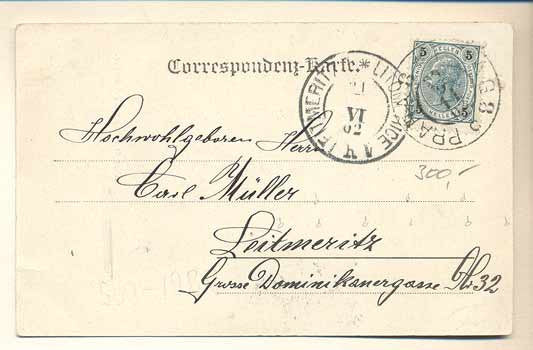 Correspondenz-Karte.
LEITMERITZ * LITOMĚŘICE
21
VI
02
5 5
PRAG 8
300,-
Hochwohlgeboren Herrn
Carl Müller
Leitmeritz
Grosse Dominikanergasse No 32